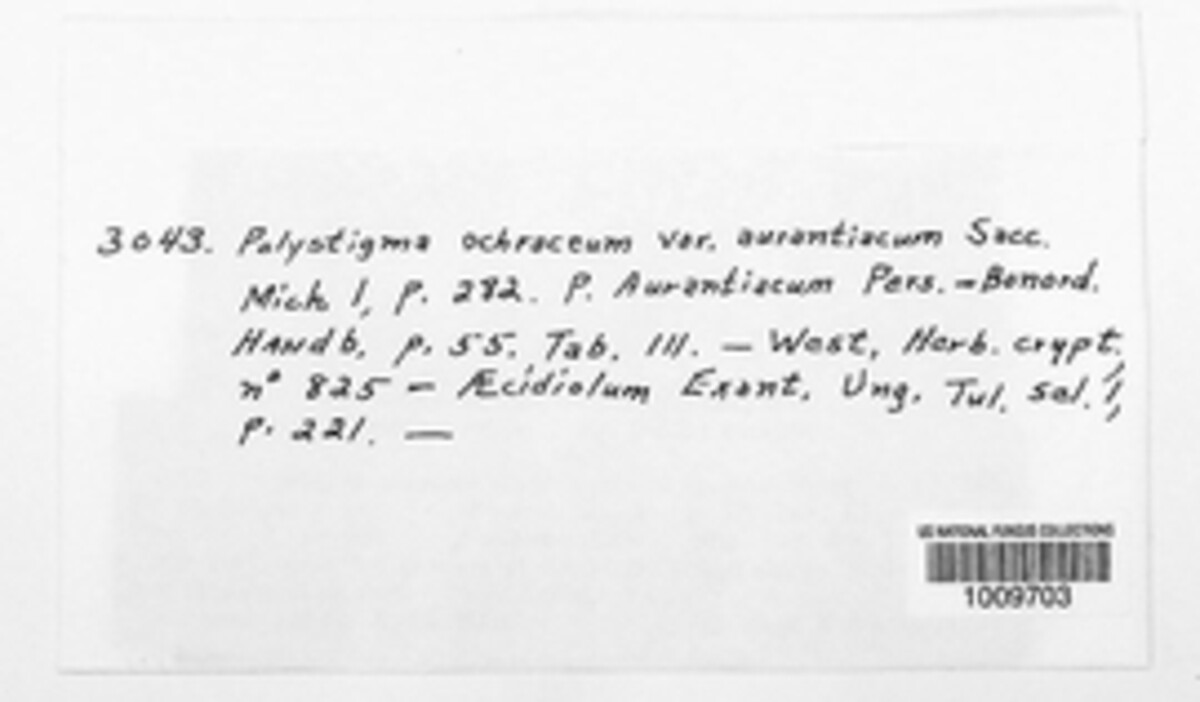 3043. Polystigma ochraceum var. aurantiacum Sacc.
Mich 1, p. 282. P. Aurantiacum Pers. - Bonord.
Handb. p. 55. Tab. III. — West, Herb. crypt.,
n° 825 - Æcidiolum Exant. Ung. Tul. sel. 1,
p. 221. —
US NATIONAL FUNGUS COLLECTIONS
1009703